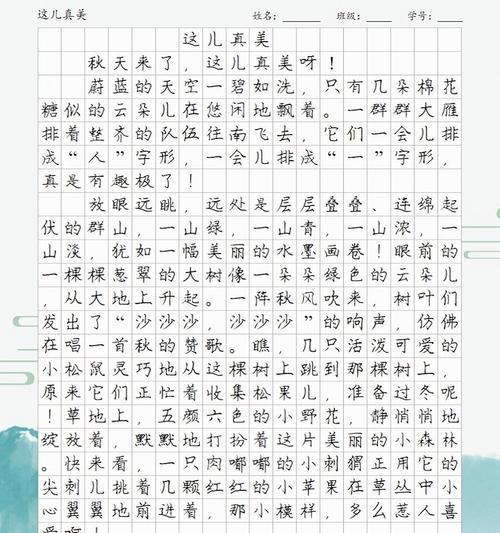 这儿真美 姓名： 班级： 学号：
这儿真美
秋天来了，这儿真美呀！
蔚蓝的天空一碧如洗，只有几朵棉花
糖似的云朵儿在悠闲地飘着。一群群大雁
排着整齐的队伍往南飞去，它们一会儿排
成“人”字形，一会儿排成“一”字形，
真是有趣极了！
放眼远眺，远处是层层叠叠、连绵起
伏的群山，一山绿，一山青，一山浓，一
山淡，犹如一幅美丽的水墨画卷！眼前的
一棵棵葱翠的大树像一朵朵绿色的云朵儿
，从大地上升起。一阵秋风吹来，树叶们
发出了“沙沙沙，沙沙沙”的响声，仿佛
在唱一首秋的赞歌。瞧，几只活泼可爱的
小松鼠灵巧地从这棵树上跳到那棵树上，
原来它们正忙着收集松果儿，准备过冬呢
！草地上，五颜六色的小野花，静悄悄地
绽放着，默默地打扮着这片美丽的小森林
。快来看，一只肉嘟嘟的小刺猬正用它的
尖刺儿挑着几颗红红的小苹果在草丛中小
心翼翼地前进着，那小模样，多么惹人喜
爱啊！